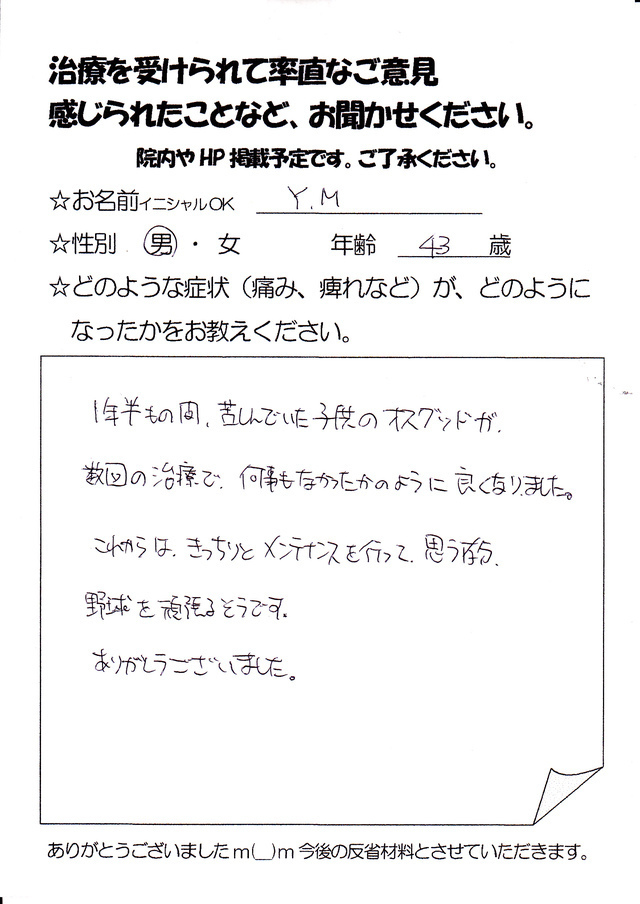 治療を受けられて率直なご意見
感じられたことなど、お聞かせください。
院内やHP掲載予定です。ご了承ください。
☆お名前イニシャルOK Y.M
☆性別 男・女 年齢 43 歳
☆どのような症状（痛み、痺れなど）が、どのように
なったかをお教えください。
1年半もの間、苦しんでいた子供のオスグッドが、
数回の治療で、何事もなかったかのように良くなりました。
これからは、きっちりとメンテナンスを行って、思う存分、
野球を頑張るそうです。
ありがとうございました。
ありがとうございましたm(__)m今後の反省材料とさせていただきます。